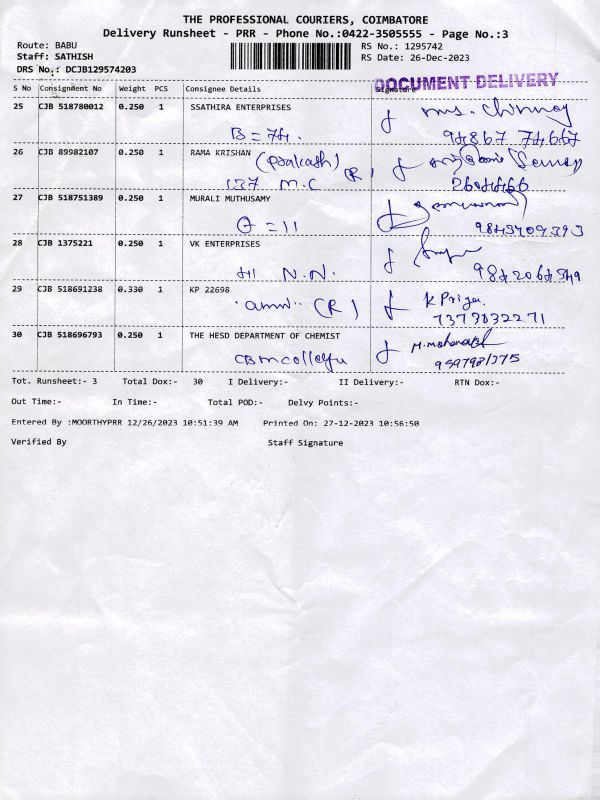 THE PROFESSIONAL COURIERS, COIMBATORE
Delivery Runsheet - PRR - Phone No.:0422-3505555 - Page No.:3
Route: BABU
Staff: SATHISH
DRS No.: DCJB129574203
RS No.: 1295742
RS Date: 26-Dec-2023
DOCUMENT DELIVERY
S No Consignment No Weight PCS Consignee Details Signature
25 CJB 518780012 0.250 1 SSATHIRA ENTERPRISES
B = 74.
94867 74667
26 CJB 89982107 0.250 1 RAMA KRISHAN (Prakash) (R)
137 M.C
27 CJB 518751389 0.250 1 MURALI MUTHUSAMY
= 11
9843709393
28 CJB 1375221 0.250 1 VK ENTERPRISES
41 N.N.
29 CJB 518691238 0.330 1 KP 22698
(R) K Priya.
7373032271
30 CJB 518696793 0.250 1 THE HESD DEPARTMENT OF CHEMIST
Tot. Runsheet:- 3 Total Dox:- 30 I Delivery:- II Delivery:- RTN Dox:-
Out Time:- In Time:- Total POD:- Delvy Points:-
Entered By :MOORTHYPRR 12/26/2023 10:51:39 AM Printed On: 27-12-2023 10:56:50
Verified By Staff Signature